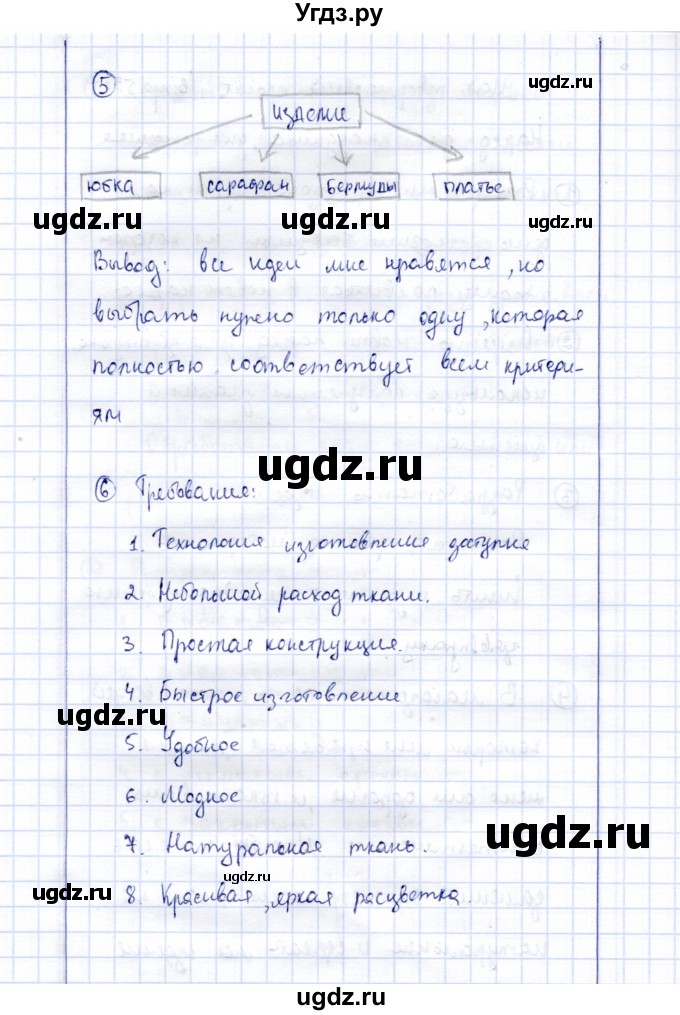 Угдз.ру
⑤
ugdz.ru
изделие
юбка сарафан бермуды платье
ugdz.ru ugdz.ru ugdz.ru
Вывод: все идеи мне нравятся, но
выбрать нужно только одну, которая
полностью соответствует всем критери-
ям
ugdz.ru
⑥ Требования:
1. Технология изготовления доступна
2. Небольшой расход ткани.
3. Простая конструкция.
4. Быстрое изготовление
ugdz.ru
5. Удобное
6. Модное
ugdz.ru
7. Натуральная ткань.
ugdz.ru
ugdz.ru
8. Красивая, яркая расцветка.
ugdz.ru
ugdz.ru
ugdz.ru